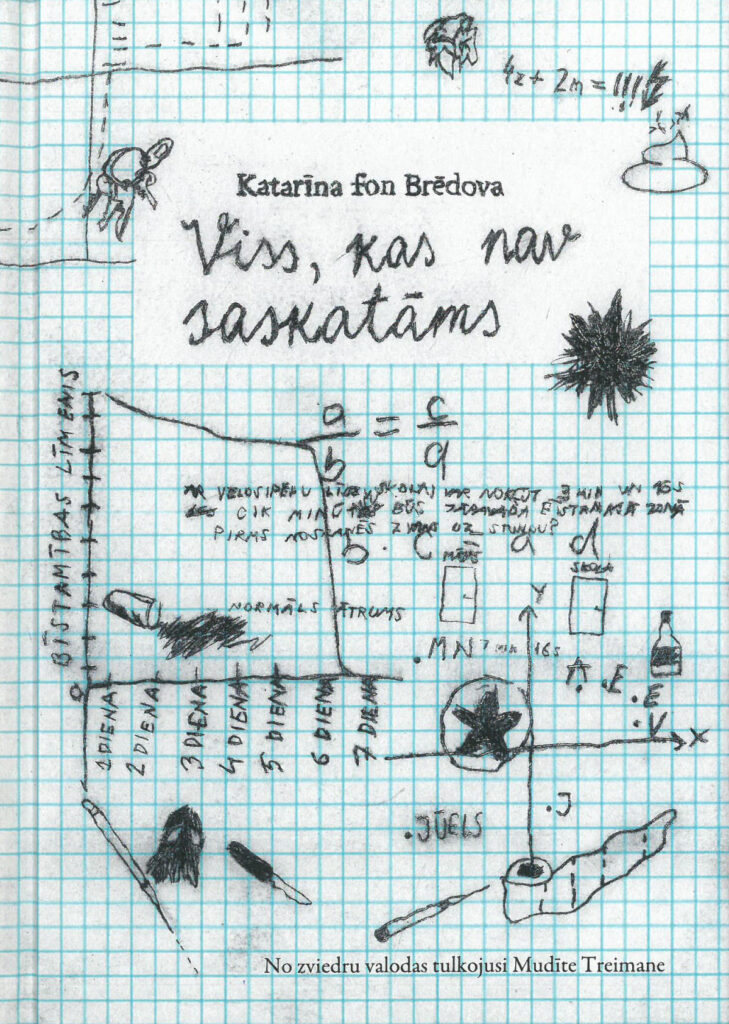 4z + 2m = !!!
Katarīna fon Brēdova
Viss, kas nav
saskatāms
BĪSTAMĪBAS LĪMENIS
a/b = c/d
AR VELOSIPĒDU LĪDZ SKOLAI VAR NOKĻŪT 3 MIN UN 15s
CIK MINŪTES BŪS JĀPAVADA BĪSTAMAJĀ ZONĀ
PIRMS NOSKANĒS ZVANS UZ STUNDU?
b · c = a · d
MĀJAS
SKOLA
NORMĀLS ĀTRUMS
Y
MN 7 min 16s
A
E
E
V
X
0
1 DIENA
2 DIENA
3 DIENA
4 DIENA
5 DIENA
6 DIENA
7 DIENA
J
JŪELS
No zviedru valodas tulkojusi Mudīte Treimane